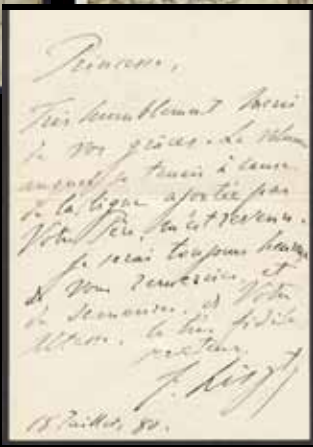 Princesse,
Très humblement merci
de vos grâces. Le volume
auquel je tenais à cause
de la ligne ajoutée par
Votre Père, m'est revenu.
Je serai toujours heureux
de vous remercier, et
de Votre
le très fidèle
F. Liszt
18 Juillet, 80.